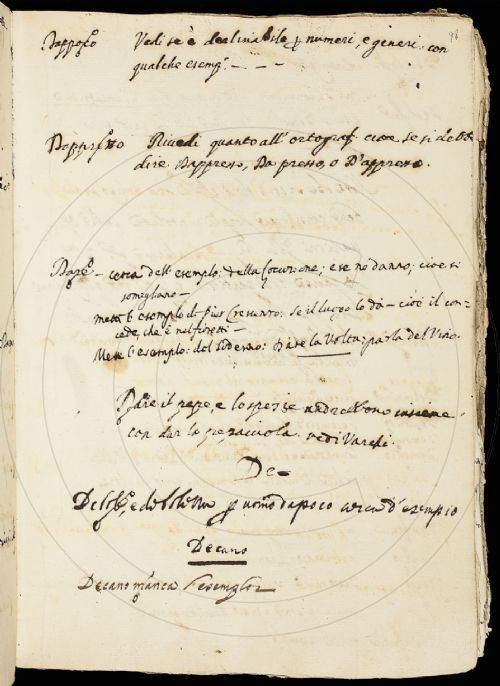 98
Dappoco Vedi se è declinabile p numeri, e generi con
qualche esemp.
Dappresso Rivedi quanto all' ortograf. cioè se si debbe
dire Dappresso, Da presso, o D'appresso.
Dare cerca dell' esemplo: della locuzione; e se no danno; cioè si
somigliano
Metti l'esemplo di Pier Crescenzo: se il luogo lo dà cioè il con
cede, che è nel
Mette l'esemplo: del Soderino: Dare la Volta: parla del Vino.
Dare il pepe, e lo spezie andrebbono insieme
con dar la. vedi Varchi.
De
Debole, e deboletto p uomo dapoco cerca d'esempio
Decano
Decano manca l'esemplo